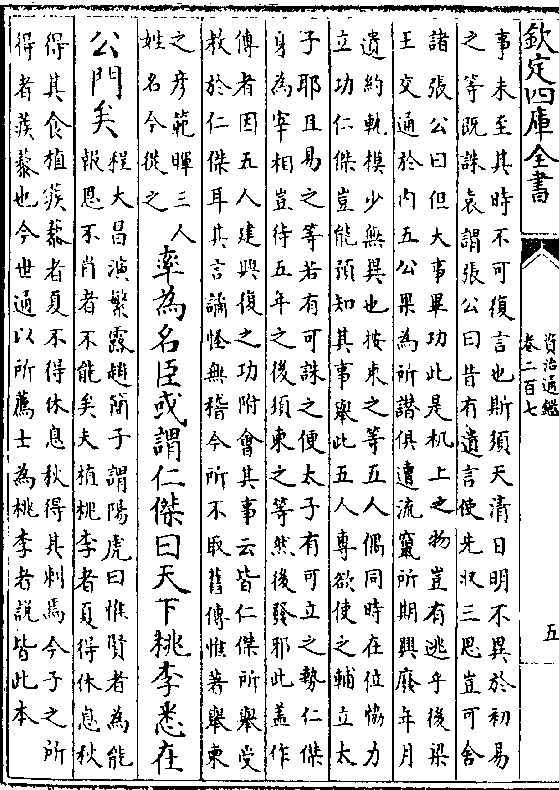 欽定四庫全書
資治通鑑
卷二百七
五
事未至其時不可復言也斯須天清日明不異於初易
之等既誅袁謂張公曰昔有遺言使先收三思豈可舍
諸張公曰但大事畢功此是机上之物豈有逃乎後梁
王交通於内五公果為所譖俱遭流竄所期興廢年月
遺約軌模少無異也按柬之等五人偶同時在位恊力
立功仁傑豈能預知其事舉此五人專欲使之輔立太
子耶且易之等若有可誅之便太子有可立之勢仁傑
身為宰相豈待五年之後須柬之等然後發耶此蓋作
傳者因五人建興復之功附會其事云皆仁傑所舉受
教於仁傑耳其言譎怪無稽今所不取舊傳惟著舉柬
之彦範暉三人
姓名今從之
率為名臣或謂仁傑曰天下桃李悉在
公門矣
程大昌演繁露趙簡子謂陽虎曰惟賢者為能
報恩不肖者不能矣夫植桃李者夏得休息秋
得其食植蒺藜者夏不得休息秋得其刺焉今子之所
得者蒺藜也今世通以所薦士為桃李者説皆此本